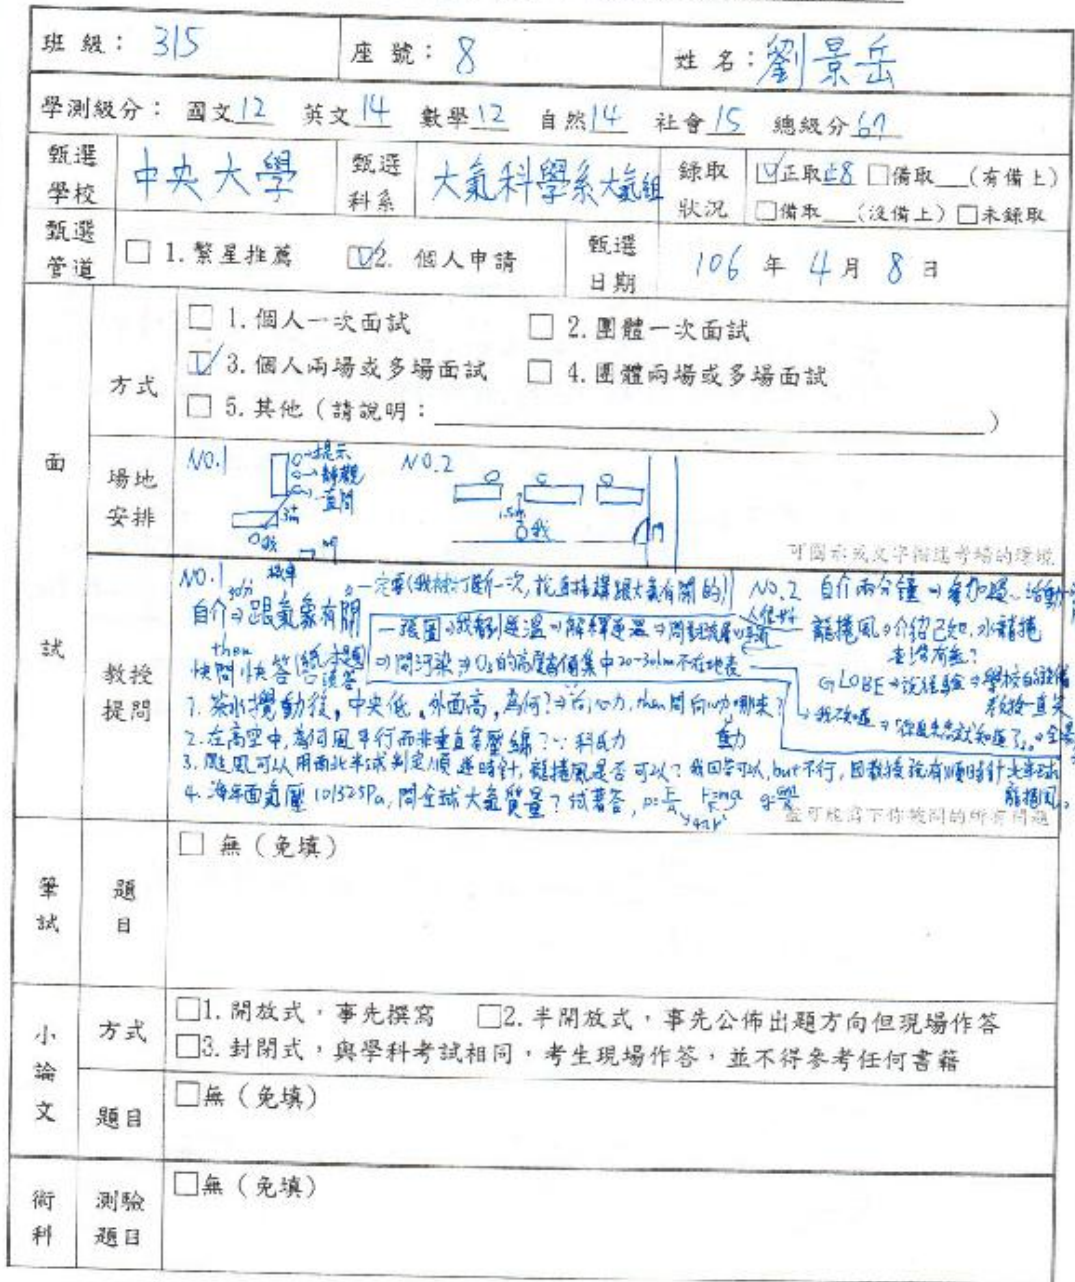 班級：315 座號：8 姓名：劉景岳
學測級分：國文12 英文14 數學12 自然14 社會15 總級分67
甄選學校 中央大學 甄選科系 大氣科學系大氣組 錄取狀況 ☑正取正8 □備取__(有備上)
□備取__(沒備上) □未錄取
甄選管道 □ 1.繁星推薦 ☑2. 個人申請 甄選日期 106 年 4 月 8 日
面試
方式
□ 1.個人一次面試 □ 2.團體一次面試
☑ 3.個人兩場或多場面試 □ 4.團體兩場或多場面試
□ 5.其他（請說明：＿＿＿＿）
場地安排
NO.1 →提示
→直問
3m
我 →門
NO.2
1.5m
我 門
可圖示或文字描述考場的環境
教授提問
NO.1
自介⇒跟氣象有關
then
快問快答
一張圖⇒我解到逆溫⇒解釋逆溫⇒
⇒問汙染⇒O₃的高度 集中20-30km不在地表
1.茶水攪動後，中央低，外面高，為何?⇒向心力, then問向心力哪來?
2.在高空中，為何風平行而非垂直等壓線？∵科氏力
3.颱風可以用南北半球判定順逆時針，龍捲風是否可以？我回答可以, but不行, 因教授說有順時針北半球龍捲風。
4.海平面氣壓101325Pa, 問全球大氣質量？試著答, P=F/A F=mg 4πr²
NO.2 自介兩分鐘⇒
龍捲風⇒介紹己知，水龍捲
GLOBE⇒說經驗⇒學校的設備
教授一直笑
盡可能寫下你被問的所有問題
筆試
題目
□ 無（免填）
小論文
方式
□1.開放式，事先撰寫 □2.半開放式，事先公佈出題方向但現場作答
□3.封閉式，與學科考試相同，考生現場作答，並不得參考任何書籍
題目
□無（免填）
術科
測驗題目
□無（免填）